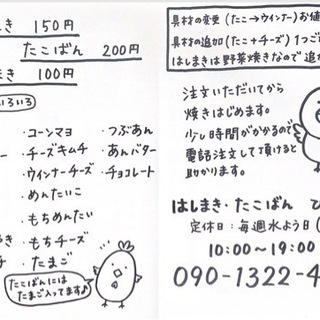 き 150円
たこばん 200円
まき 100円
いろいろ
・コーンマヨ
・チーズキムチ
・ウインナーチーズ
・めんたいこ
・もちめんたい
・もちチーズ
・たまご
・つぶあん
・あんバター
・チョコレート
たこばんには
たまご入ってます♪
具材の変更（たこ→ウインナー）お値
具材の追加（たこ＋チーズ）1つご
はしまきは野菜焼きなので 追加
注文いただいてから
焼きはじめます。
少し時間がかかるので
電話注文して頂けると
助かります。
はしまき・たこばん ひ
定休日：毎週水よう日（
10:00～19:00
090-1322-4